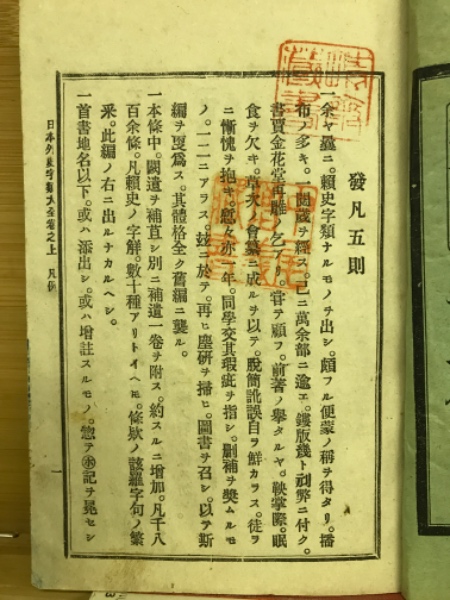 發凡五則
一余ヤ曩ニ。賴史字類ナルモノヲ出シ。頗フル便蒙ノ稱ヲ得タリ。播
布ノ多キ。一閲歳ヲ經ス。已ニ萬余部ニ逾エ。鏤版幾ト刓弊ニ付ク。
書賈金花堂再雕ノ乞アリ。甞テ顧フ。前著ノ擧タルヤ。鞅掌際。眠
食ヲ欠キ。草次ノ會纂ニ成ルヲ以テ。脫簡訛誤自ラ鮮カラス。徒ラ
ニ慚愧ヲ抱キ。慙々亦一年。同學交其瑕疵ヲ指シ。劃補ヲ奬ムルモ
ノ。一二ニアラス。玆ニ於テ。再ヒ塵硏ヲ掃ヒ。圖書ヲ召シ。以テ斯
編ヲ爲ス。其體格全ク舊編ニ襲ル。
一本條中。闕遺ヲ補苴シ別ニ補遺一卷ヲ附ス。約スルニ增加。凡千八
百余條。凡賴史ノ字解。數十種アリトイヘ𪜈。條欵ノ該羅字句ノ繁
釆。此編ノ右ニ出ルナカルヘシ。
一首書地名以下。或ハ添出シ。或ハ增註スルモノ。惣テ㊌記ヲ冕セシ
日本外史字類大全卷之上 凡例 一